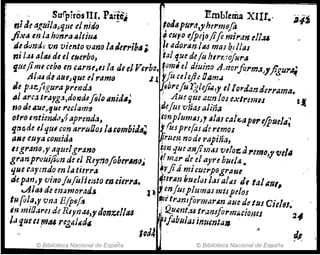 Suspiros III. Parte,
ni de aguila, que el nido
fixa en la honra altiua
de donde vn viento vano la derriba;
ni las alas de el cuerbo,
que fime cebo en carne, es la de el Verbo.
Alas de aue, que el ramo
de paz, figura prenda
al arca trayga, donde solo anida;
no de aue, que reclamo
otro entienda, ò aprenda,
que de el que con arrullos la combida;
aue cuya comida
es grano, y aquel grano
gran prouision de el Reyno soberano;
que cayendo en la tierra
de pan, y vino su sustento encierra.
Alas de enamorada
tu sola, y vna Esposa
en millares de Reynas, y donzellas
la que es mas regalada
toda
Emblema XIII.
toda pura, y hermosa
à cuyo espejo si se miran ellas
le adoran las mas bellas
tal que de su hermosura
tomé el diuino A. nor forma, y figura;
y su celeste Dama
sobre su Iglesia, y el Iordan derrama.
Aue que aun los extremos
de sus vñas aliña
con plumas, y alas calça por espuela;
y sus presas de remos
siruen no de rapiña,
con que anfimas veloz à remo, y vela
el mar de el ayre buela.
y si à mi cuerpo graue
dieran buelo las alas de tal aue,
y en sus plumas mis pelos
me transformaran aue de tus Cielos.
Quentas transformaciones
fabulas inuentan
de
© Biblioteca Nacional de España
© Biblioteca Nacional de España